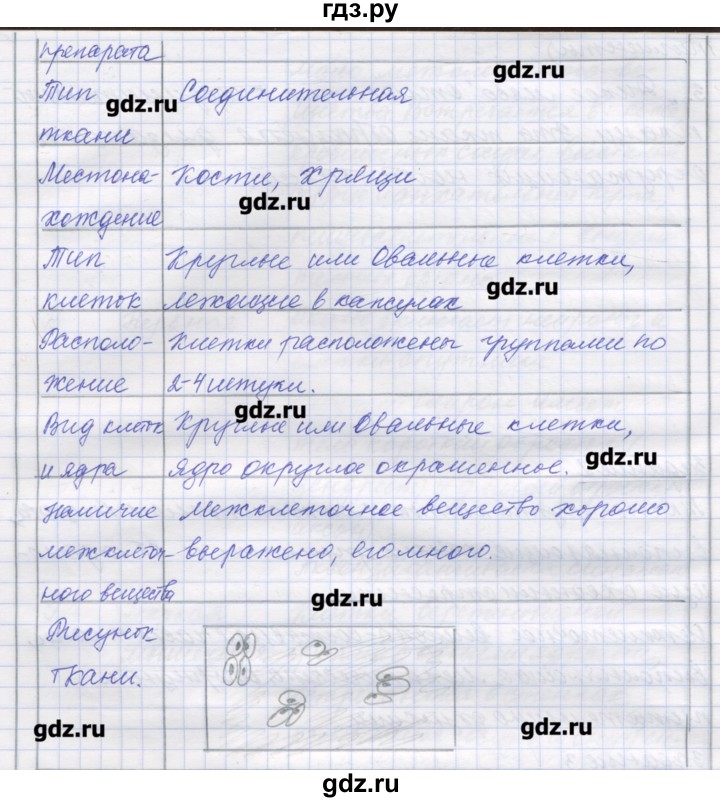 гдз.ру
препарата
gdz.ru
Тип Соединительная
gdz.ru
ткани
Местона- Кости, хрящи
gdz.ru
хождение
Тип Круглые или овальные клетки,
gdz.ru
клеток лежащие в капсулах
Располо- Клетки расположены группами по
жение 2-4 штуки.
gdz.ru
Вид клеток Круглые или овальные клетки,
gdz.ru
и ядра ядро округлое окрашенное.
Наличие Межклеточное вещество хорошо
межклеточ- выражено, его много.
ного вещества
gdz.ru
Рисунок
ткани.
gdz.ru
gdz.ru
gdz.ru